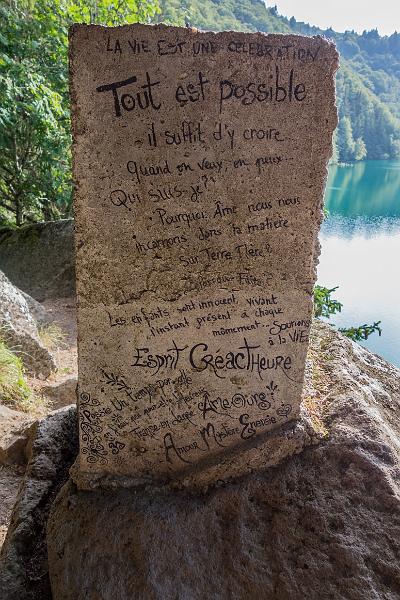 LA VIE EST UNE CELEBRATION
Tout est possible
il suffit d'y croire
Quand on veux, on peux...
Qui suis-je?
Pourquoi, Âme nous nous
incarnons dans la matière
sur Terre Mère?
Les enfants sont innocent vivant
l'instant présent à chaque
mômement. Sourions
à la ViE
ESPRiT CRéACTHEURE
Un Temps
AmeOURs
Amour Mystère Energie